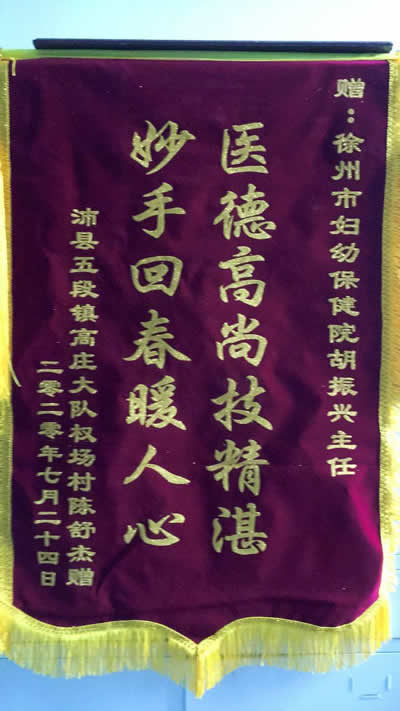 赠：徐州市妇幼保健院胡振兴主任
医德高尚技精湛
妙手回春暖人心
沛县五段镇高庄大队权场村陈舒杰赠
二零二零年七月二十四日